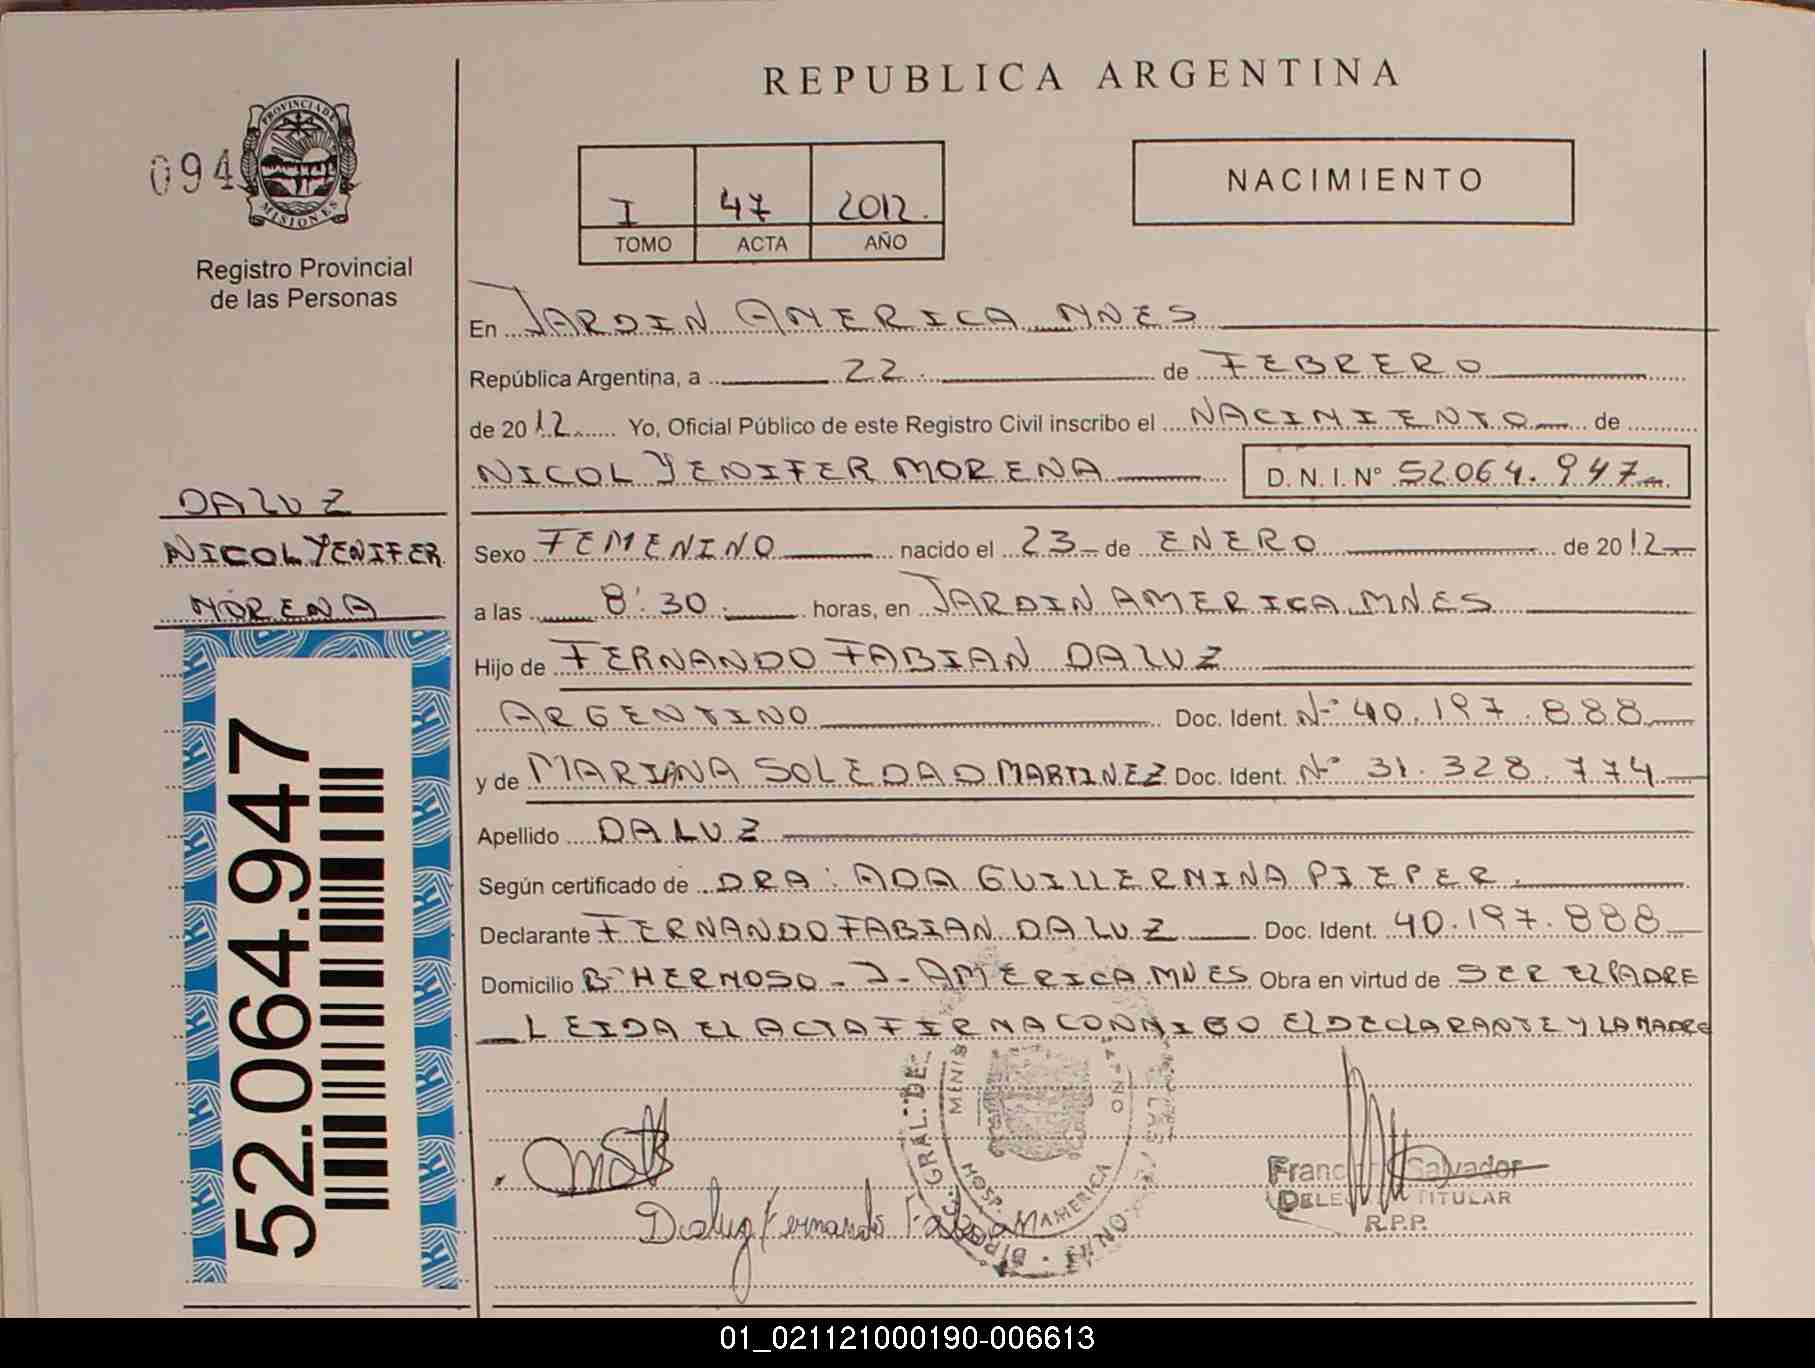 REPUBLICA ARGENTINA
094
PROVINCIA DE
MISIONES
Registro Provincial
de las Personas
I 47 2012.
TOMO ACTA AÑO
NACIMIENTO
En JARDIN AMERICA MNES
República Argentina, a 22 de FEBRERO
de 2012 Yo, Oficial Público de este Registro Civil inscribo el NACIMIENTO de
NICOL YENIFER MORENA D. N. I. N° 52.064.947
DALUZ
NICOL YENIFER
MORENA
Sexo FEMENINO nacido el 23 de ENERO de 2012
a las 8:30 horas, en JARDIN AMERICA MNES
Hijo de FERNANDO FABIAN DALUZ
ARGENTINO Doc. Ident. N° 40.197.888
y de MARIANA SOLEDAD MARTINEZ Doc. Ident. N° 31.328.774
Apellido DALUZ
Según certificado de DRA: ADA GUILLERMINA PIEPER.
Declarante FERNANDO FABIAN DALUZ Doc. Ident. 40.197.888
Domicilio B° HERMOSO - J- AMERICA MNES Obra en virtud de SER EL PADRE
LEIDA EL ACTA FIRMA CONMIGO EL DECLARANTE Y LA MADRE
52.064.947
GRAL. DE
MENIS
HOSP.
AMERICA
Daluz Fernando Fabian
Franc Salvador
DELE TITULAR
R.P.P.
01_021121000190-006613